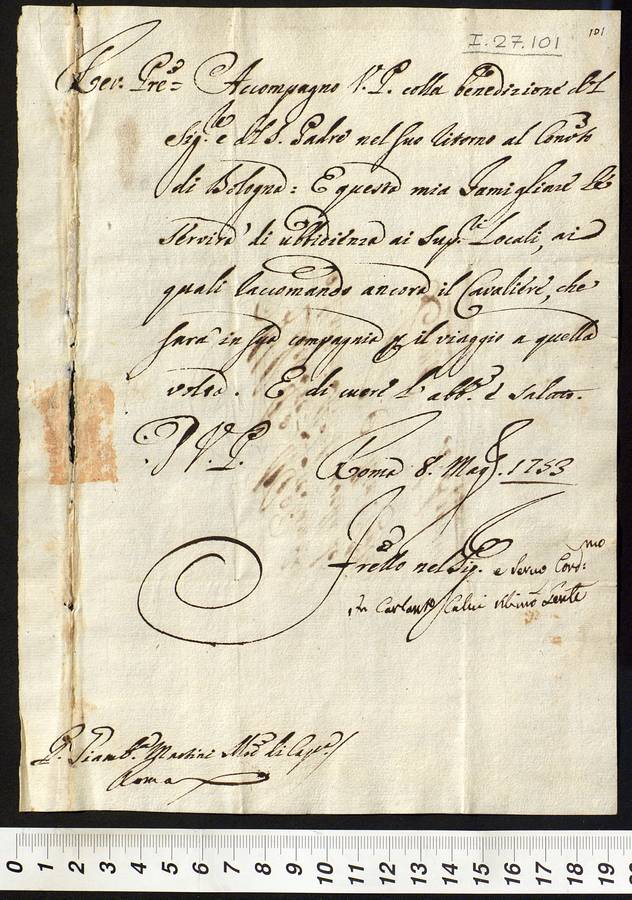 101
I.27.101
Rev. Pre= Accompagno V. P. colla benedizione del
Sig.re e del S. Padre nel suo ritorno al Conv.to
di Bologna: E questa mia famigliare le
servirà di ubbidienza ai Sup.ri Locali, ai
quali raccomando ancora il Cavaliere, che
sarà in sua compagnia p il viaggio a quella
volta. E di cuore l'abb.o e saluto.
D V. P. Roma 8. Mag. 1753
Frello nel Sig. e servo Cord:mo
fr Carlant.o Calvi Min.o Gen.le
P. Giamb.a Martini M.ro di Capp.a
Roma
0 1 2 3 4 5 6 7 8 9 10 11 12 13 14 15 16 17 18 19